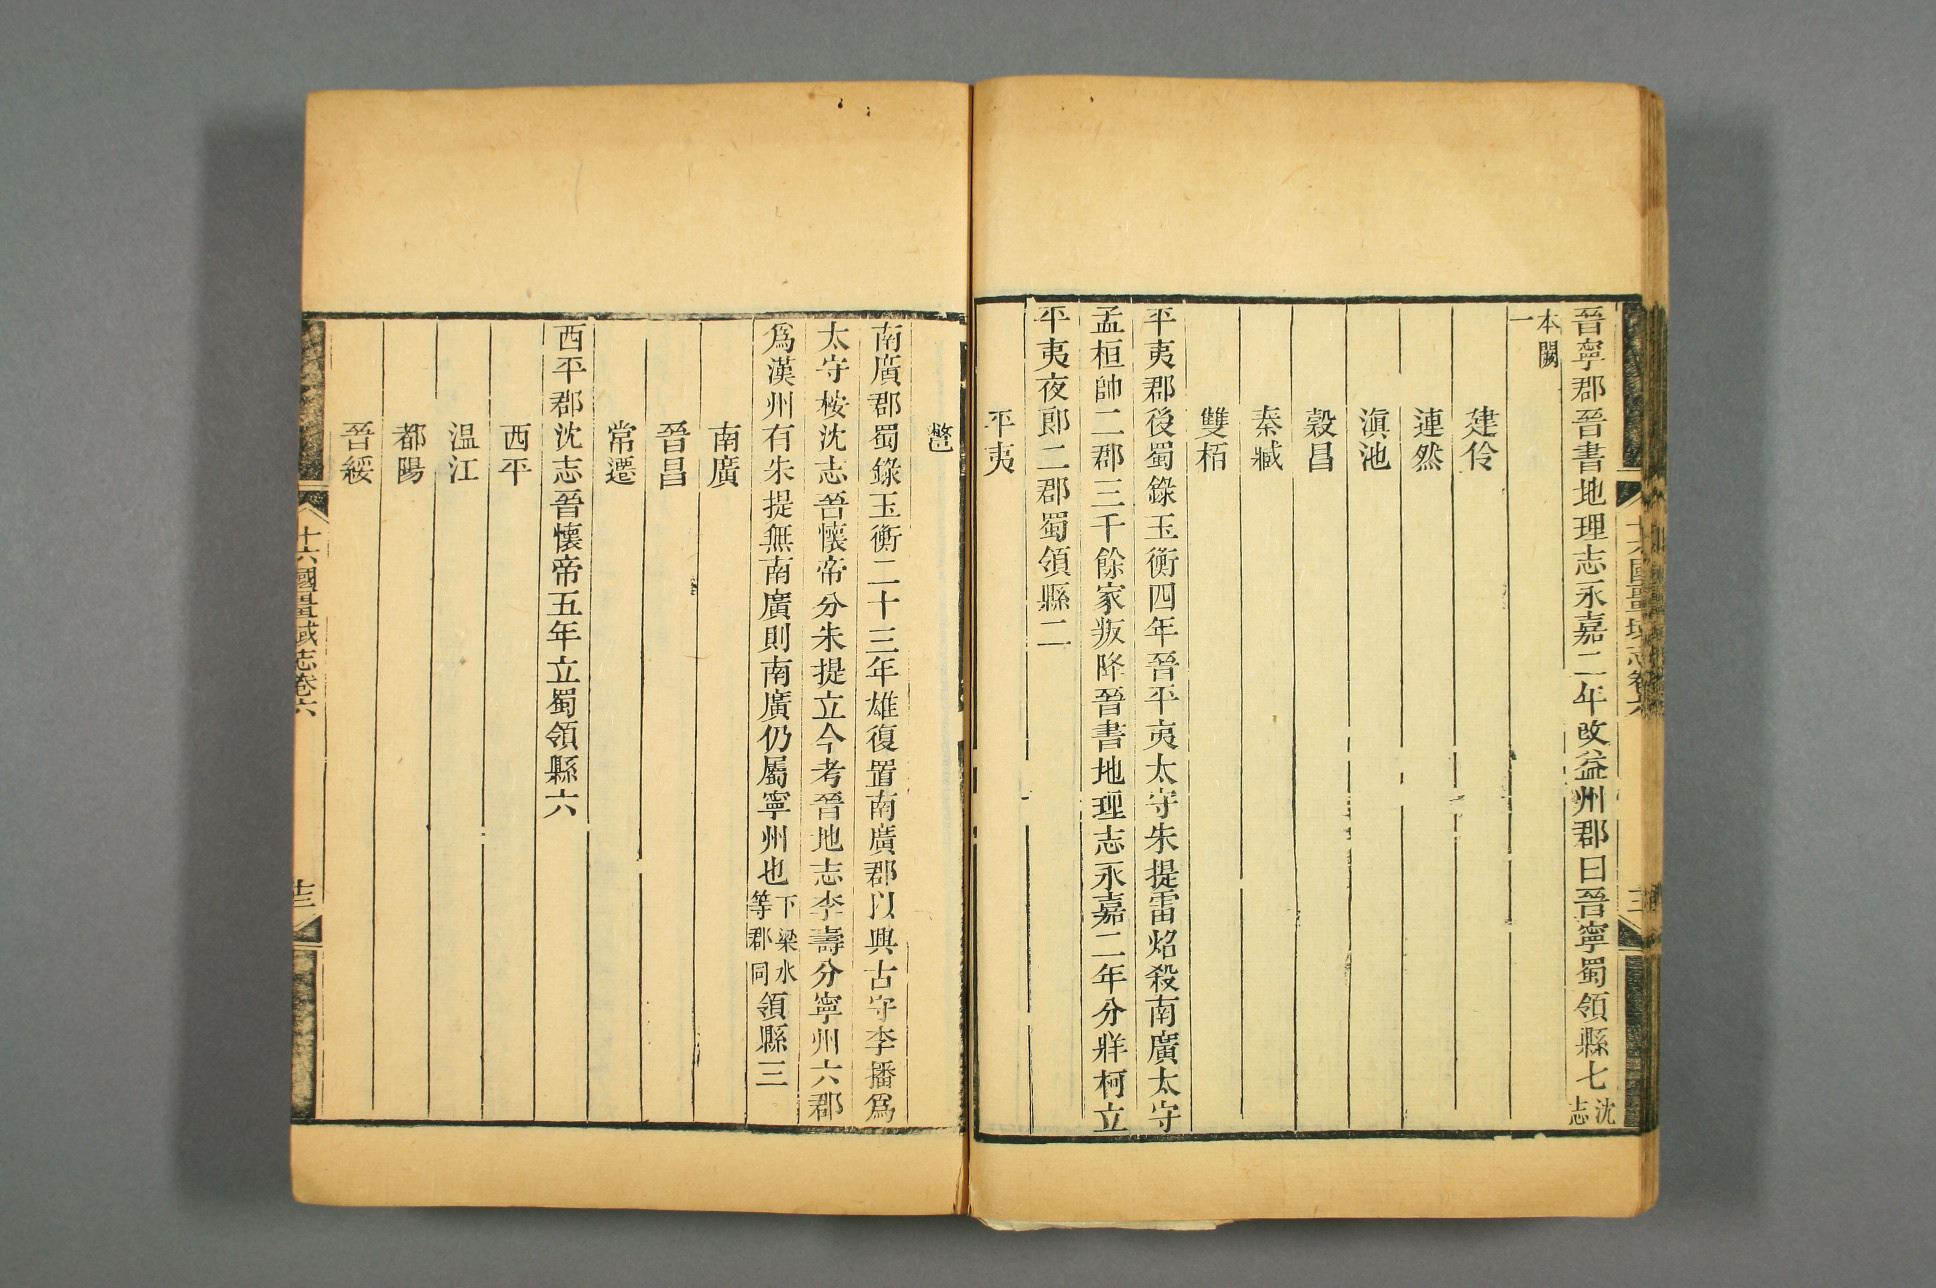 晉寧郡晉書地理志永嘉二年改益州郡曰晉寧蜀領縣七沈志
本闕一
建伶
連然
滇池
穀昌
秦臧
雙栢
平夷郡後蜀錄玉衡四年晉平夷太守朱提雷炤殺南廣太守
孟桓帥二郡三千餘家叛降晉書地理志永嘉二年分牂柯立
平夷夜郎二郡蜀領縣二
平夷
鄨
南廣郡蜀錄玉衡二十三年雄復置南廣郡以興古守李播爲
太守桉沈志晉懷帝分朱提立今考晉地志李壽分寧州六郡
爲漢州有朱提無南廣則南廣仍屬寧州也下梁水等郡同領縣三
南廣
晉昌
常遷
西平郡沈志晉懷帝五年立蜀領縣六
西平
温江
都陽
晉綏
十六國畺域志卷六
十三